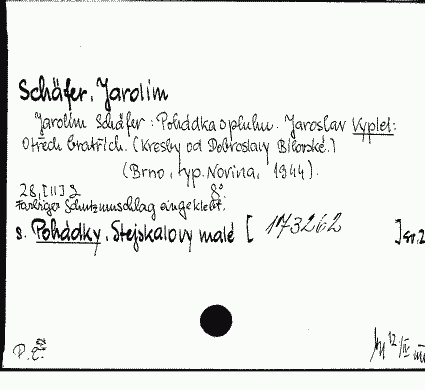 Schäfer, Jarolím
Jarolím Schäfer: Pohádka o pluhu. Jaroslav Vyplel:
O třech bratřích. (Kresby od Dobroslavy Bílovské.)
(Brno, typ. Novina, 1944).
28, [II] S 8°
Farbiger Schutzumschlag eingeklebt.
s. Pohádky, Stejskalovy malé [ 173262 ] sv. 2
P. č.
12/IV